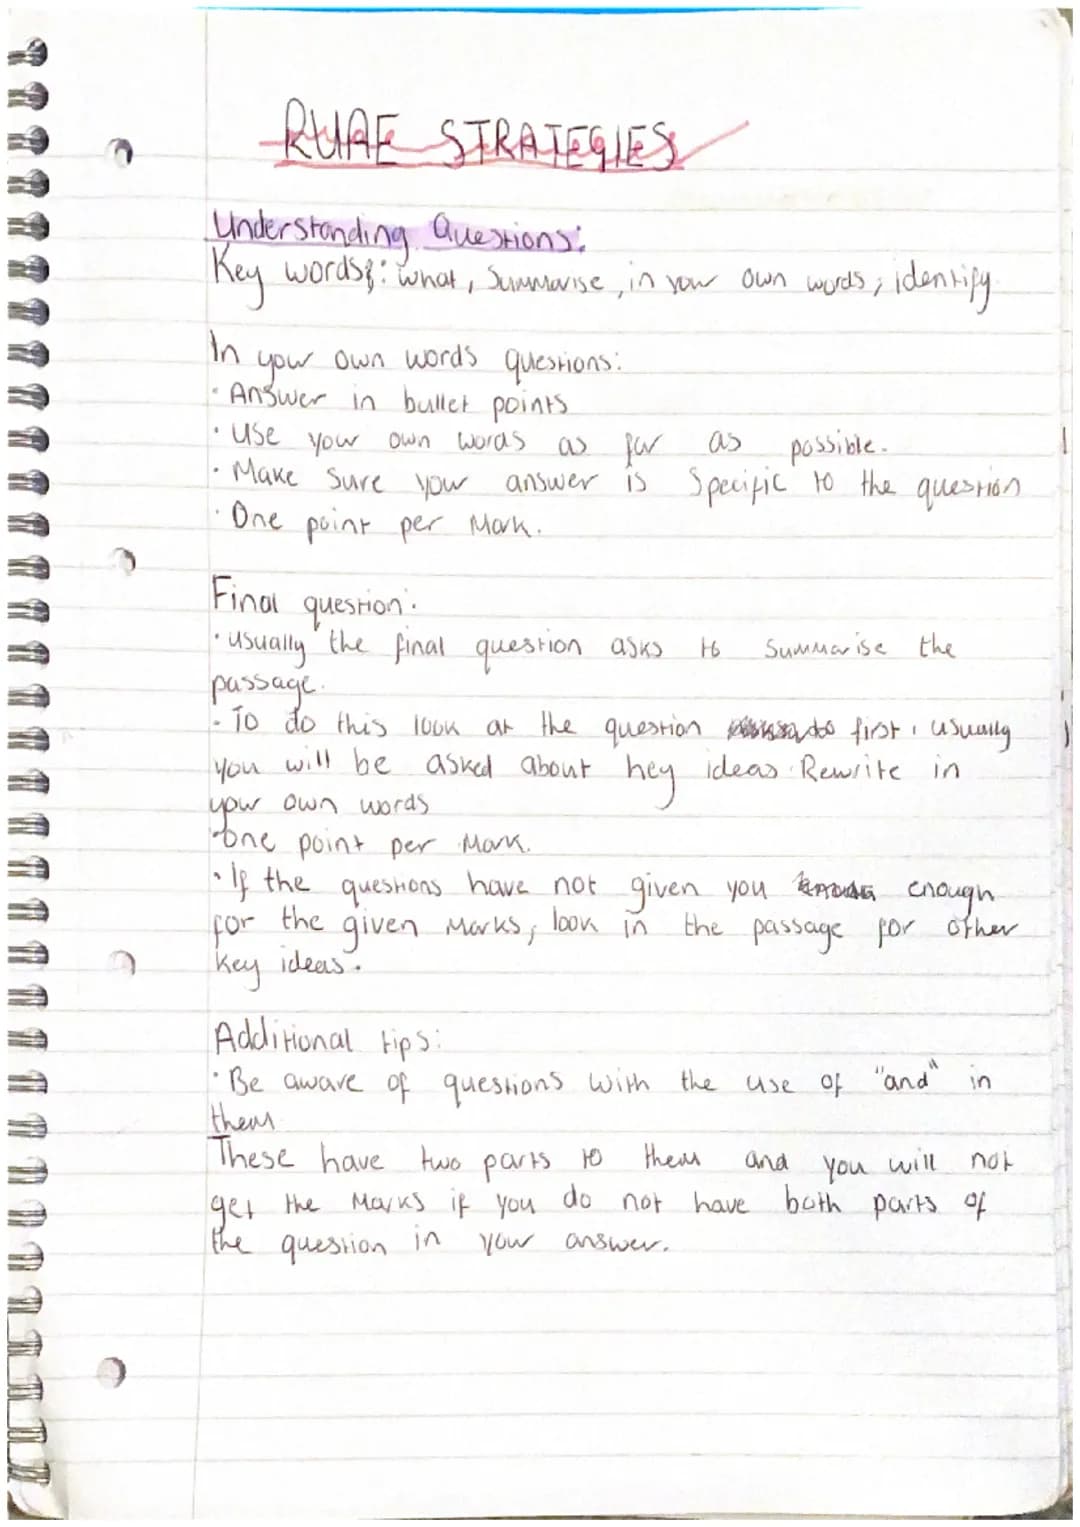 RUAE STRATEGIES
Understanding Questions:
Key words: what, Summarise, in your own words, identify
In your own words questions:
· Answer in bullet points
· Use your own words as far as possible.
· Make sure your answer is Specific to the question
· One point per Mark.
Final question:
· usually the final question asks to summarise the
passage.
· To do this look at the question first, usually
you will be asked about key ideas. Rewrite in
your own words
· One point per Mark.
· If the questions have not given you enough
for the given Marks, look in the passage for other
key ideas.
Additional tips:
· Be aware of questions with the use of "and" in
them
These have two parts to them and you will not
get the Marks if you do not have both parts of
the question in your answer.